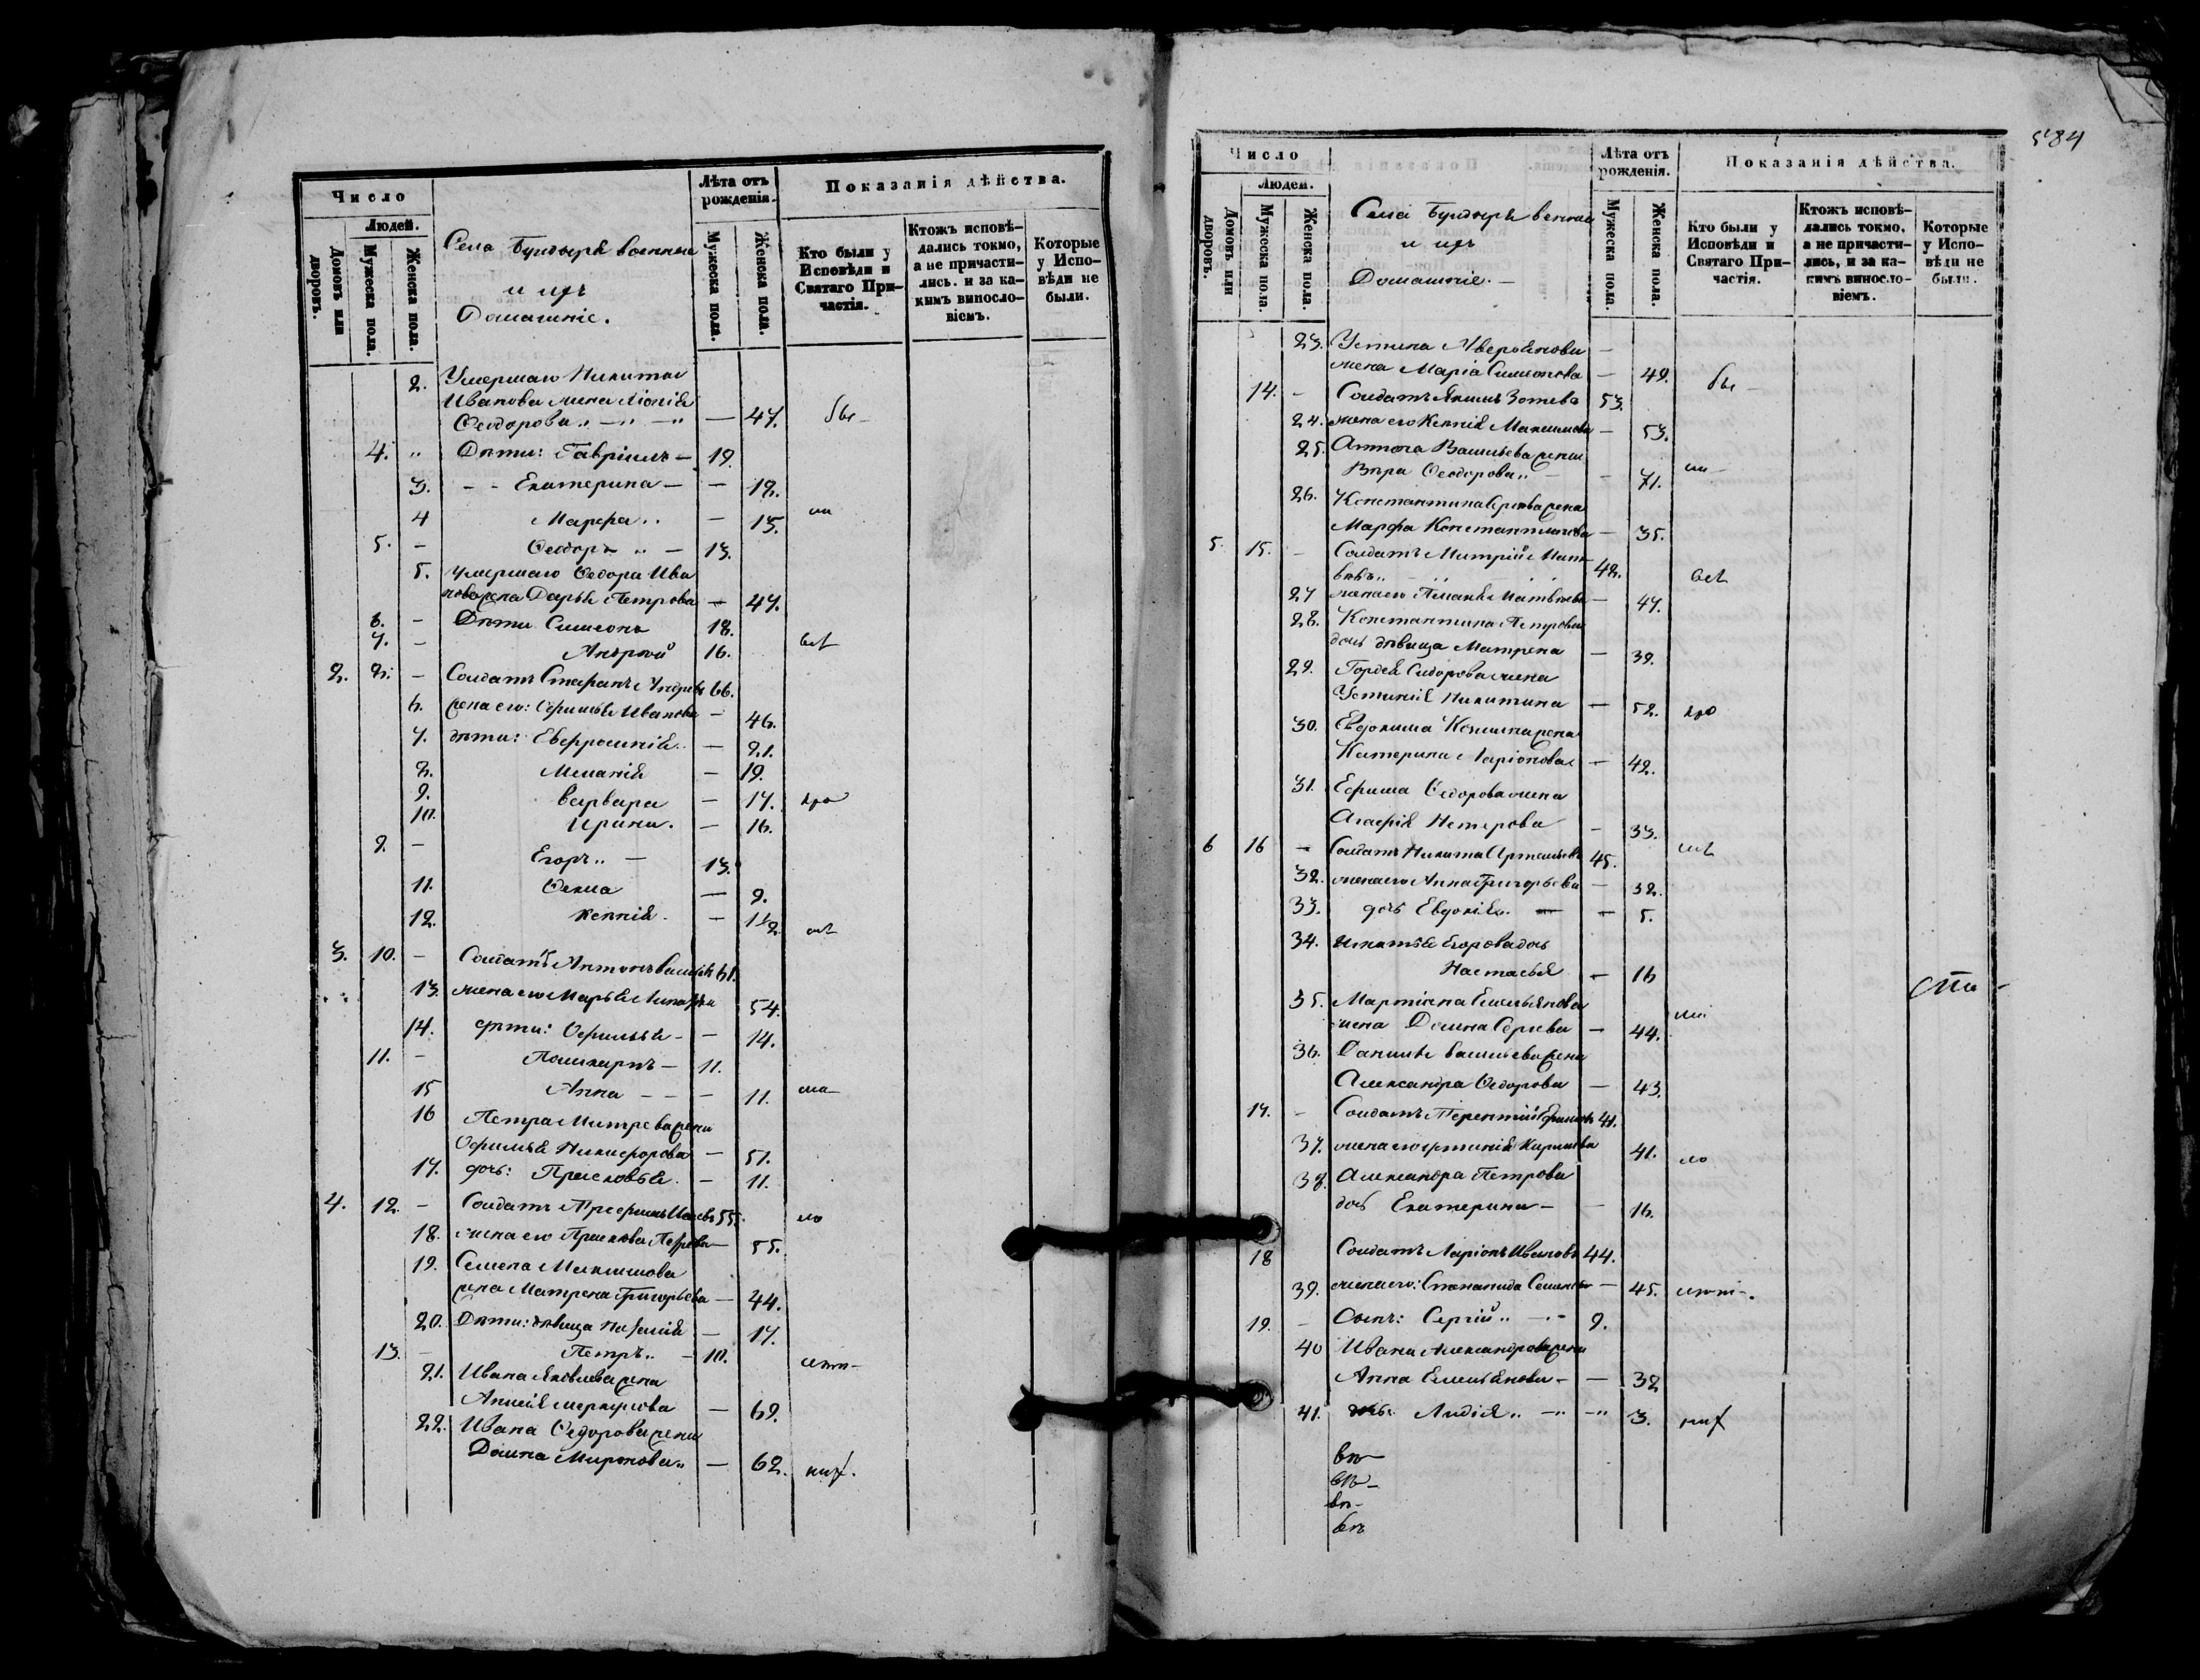 Число
Людей.
Домовъ или дворовъ.
Мужеска пола.
Женска пола.
Села Бундыря военныя
и ихъ
Домашніе.
Лѣта отъ рожденія.
Мужеска пола.
Женска пола.
Показанія дѣйства.
Кто были у Исповѣди и Святаго Причастія.
Ктожъ исповѣдались токмо, а не причастились. и за какимъ винословіемъ.
Которые у Исповѣди не были.
2. Умершаго Никиты
Иванова жена
Ѳеодорова — 47. бы-
4. „ Дѣти: Гавріилъ — 19.
3. Екатерина — — 18.
4 Марѳа — 15. ли
5. - Ѳеодоръ — 13.
5. Умершаго Ѳедора Ива
нова жена Дарья Петрова — 47.
6. - Дѣти Симеонъ 18.
7. - 16. всѣ
2. 8. - Солдатъ Стефанъ 66.
6. жена его: Иванова — 46.
7. дѣти: Евфросинія — 21.
8. Меланія — 19.
9. Варвара — 17. кро
10. Ирина. — 16.
9. - Егоръ — 13.
11. Ѳекла — 9.
12. Ксенія. — 1½. мѣ
3. 10. - Солдатъ Антонъ 61.
13. жена его Марья 54.
14. дѣти: — 14.
11. - Поликарпъ — 11.
15 Анна — 11. ма-
16 Петра Митрева жена
Никифорова — 51.
17. дочь: Прасковья. — 11.
4. 12. - Солдатъ 55. ло
18. жена его Петрова — 55.
19. Семена Максимова
жена Матрена Григорьева — 44.
20. Дѣти: дѣвица — 17.
13. - Петръ — 10. лѣтн-
21. Ивана Яковлева жена
— 69.
22. Ивана Ѳедорова жена
Домна Миронова — 62. ихъ.
584
Число
Людей.
Домовъ или дворовъ.
Мужеска пола.
Женска пола.
Села Бундыря военныя
и ихъ
Домашніе. —
Лѣта отъ рожденія.
Мужеска пола.
Женска пола.
Показанія дѣйства.
Кто были у Исповѣди и Святаго Причастія.
Ктожъ исповѣдались токмо, а не причастились, и за какимъ винословіемъ.
Которые у Исповѣди не были.
23. Устина Аверьянова —
жена Марія Симеонова — 49. бы-
14. - Солдатъ Якимъ Зотевъ 53.
24. жена его Ксенія Максимова — 53.
25. Антона Васильева жена
Вѣра Ѳеодорова — 71. ли-
26. Константина жена
Марфа Константинова — 35.
5. 15. - Солдатъ Митрій Мат-
вѣвъ 48. всѣ
27 жена его Матвѣева — 47.
28. Константина Петрова
дочь дѣвица Матрена — 39.
29. Гордѣя Сидорова жена
Устинія Никитина — 52. кро
30. Евдокима жена
Катерина Ларіонова — 42.
31. Ефима Ѳедорова жена
Агафія Нестерова — 33.
6 16 - Солдатъ Никита Артемьевъ 45. мѣ
32. жена его Анна Григорьева — 32.
33. дочь Евдокія — 5.
34. Игнатья Егорова дочь
Настасья — 16
сти-
35. Емельянова ма
жена Домна Сергѣева — 44.
36. Данилы Васильева жена
Александра Ѳедорова — 43.
17. - Солдатъ Терентій 41.
37. жена его Кирилова 41. ло
38. Александра Петрова
дочь Екатерина — 16.
18 Солдатъ Ларіонъ Ивановъ 44.
39. жена его: Степанида Семенова — 45. лѣтн-.
19. - Сынъ: Сергій — 9.
40 Ивана Александрова жена
Анна Емельянова — — 32
41. дочь: Лидія — 3. ихъ
вѣ
вѣ-
вѣ-
вѣ